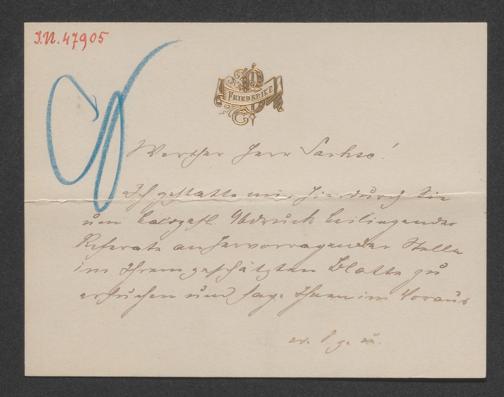 I.N. 47905
FRIEDERIKE
Werther Herr Sachse!
Ich gestatte mir, hierdurch Sie
um baldgefl. Abdruck beiliegender
Referate an hervorragender Stelle
in Ihrem geschätzten Blatte zu
ersuchen und sage Ihnen im Voraus